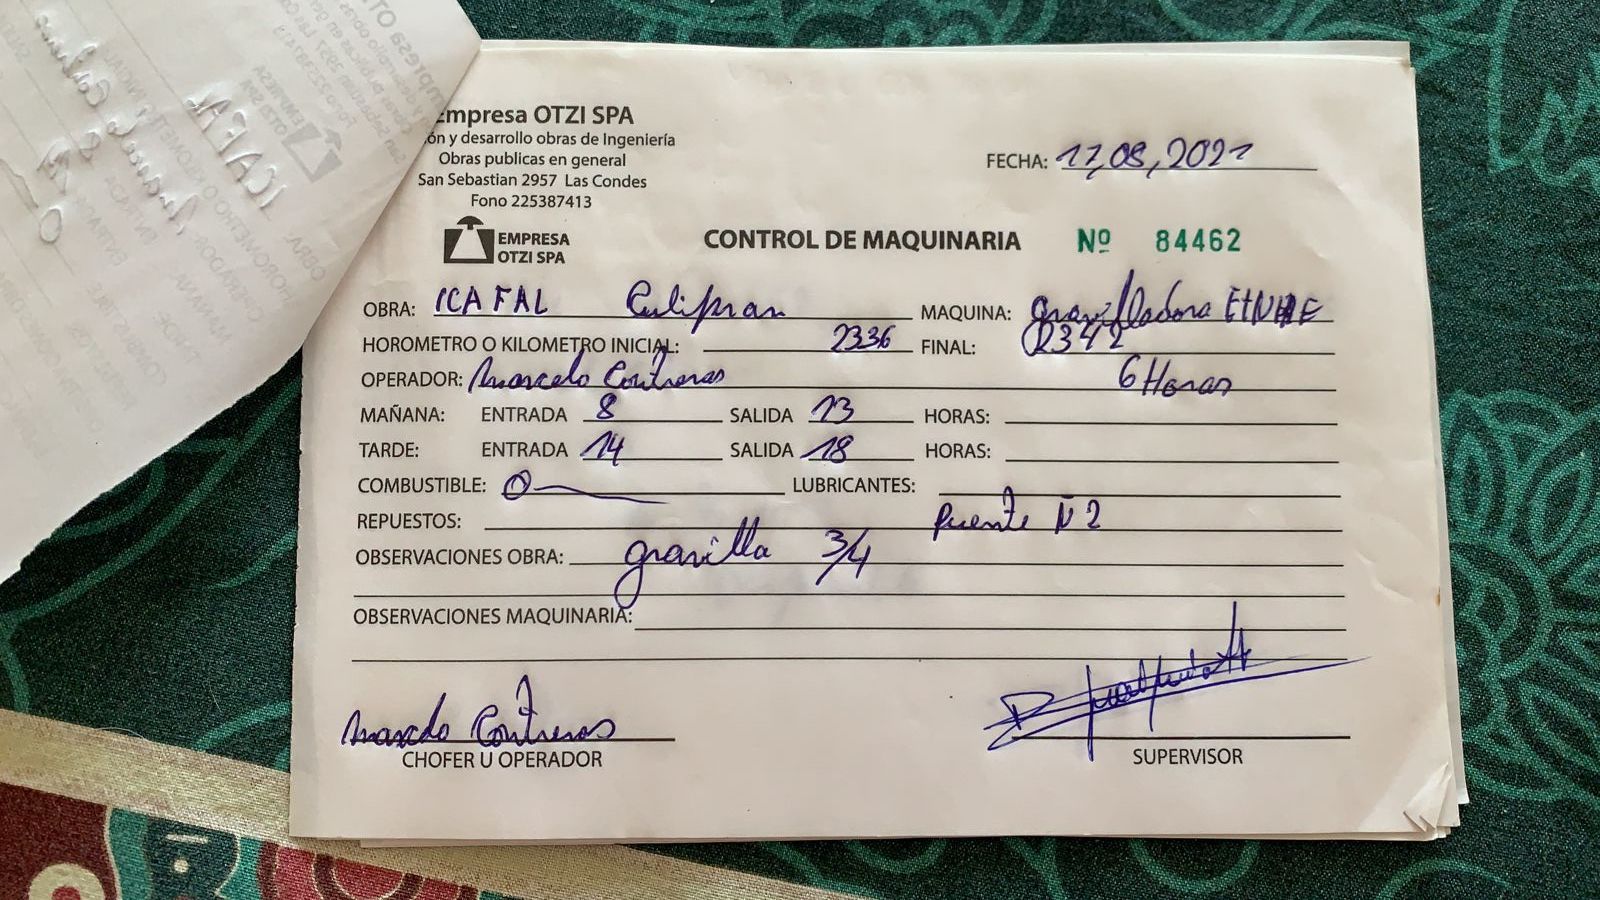 Empresa OTZI SPA
ón y desarrollo obras de Ingeniería
Obras publicas en general
San Sebastian 2957 Las Condes
Fono 225387413
FECHA: 17,08,2021
EMPRESA
OTZI SPA
CONTROL DE MAQUINARIA Nº 84462
OBRA: ICAFAL Culipran MAQUINA: gravilladora
HOROMETRO O KILOMETRO INICIAL: 2336 FINAL: 2342
OPERADOR: Marcelo Contreras 6 Horas
MAÑANA: ENTRADA 8 SALIDA 13 HORAS:
TARDE: ENTRADA 14 SALIDA 18 HORAS:
COMBUSTIBLE: 0 LUBRICANTES:
REPUESTOS: Puente N 2
OBSERVACIONES OBRA: gravilla 3/4
OBSERVACIONES MAQUINARIA:
Marcelo Contreras
CHOFER U OPERADOR
SUPERVISOR